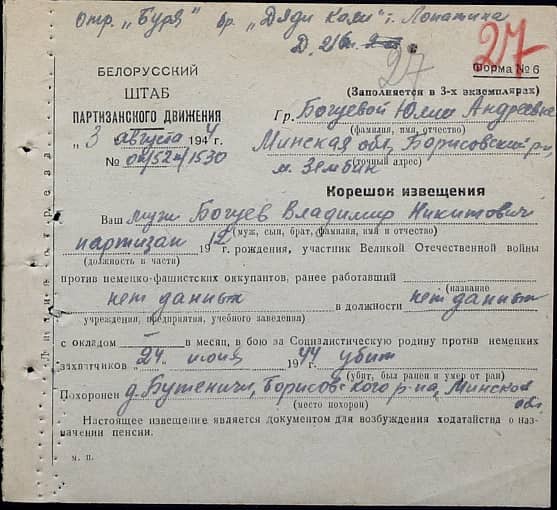 Отр. „Буря" бр. „Дяди Коли"; Лопатина
Д. 21
27
27
Форма № 6
БЕЛОРУССКИЙ
ШТАБ
ПАРТИЗАНСКОГО ДВИЖЕНИЯ
„ 3 " августа 1944
№ 1530
(Заполняется в 3-х экземплярах)
Гр. Богуевой Юлии Андреевне
(фамилия, имя, отчество)
Минская обл., Борисовский р-н,
(точный адрес)
м. Зембин
Корешок извещения
Ваш муж Богуев Владимир Никитович
(муж, сын, брат, фамилия, имя и отчество)
партизан 1912 г. рождения, участник Великой Отечественной войны
(должность в части)
против немецко-фашистских оккупантов, ранее работавший
(название
нет данных в должности нет данных
учреждения, предприятия, учебного заведения)
с окладом — в месяц, в бою за Социалистическую родину против немецких
захватчиков „24" июня 1944 убит
(убит, был ранен и умер от ран)
Похоронен д. Бутеничи, Борисовского р-на, Минской
обл.
(место похорон)
Настоящее извещение является документом для возбуждения ходатайства о наз-
начении пенсии.
м. п.